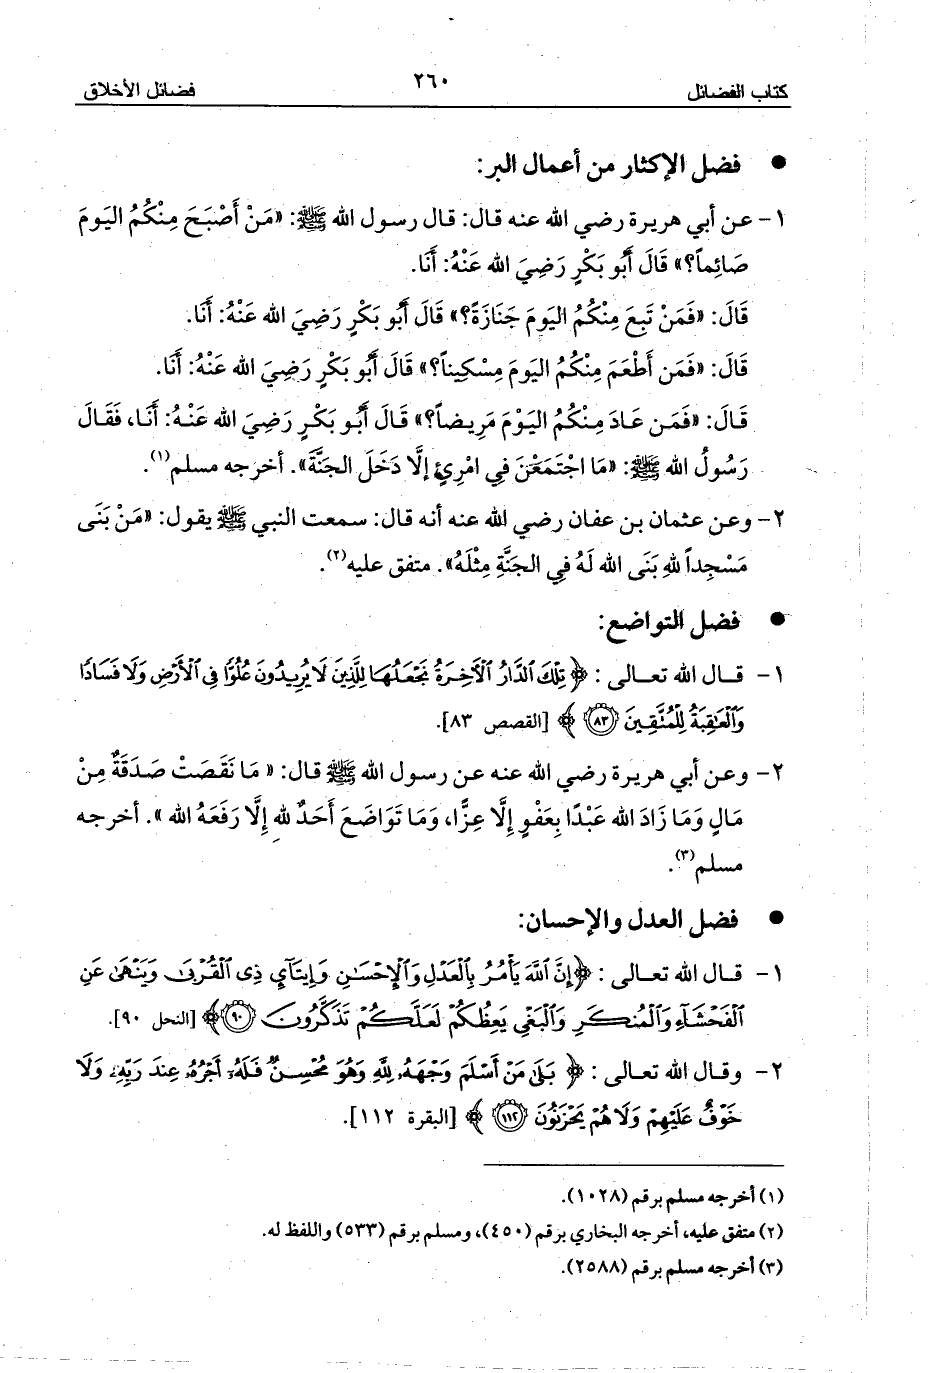 كتاب الفضائل ٢٦٠ فضائل الأخلاق
● فضل الإكثار من أعمال البر:
١- عن أبي هريرة رضي الله عنه قال: قال رسول الله ﷺ: «مَنْ أَصْبَحَ مِنْكُمُ اليَومَ
صَائِماً؟» قَالَ أَبُو بَكْرٍ رَضِيَ الله عَنْهُ: أَنَا.
قَالَ: «فَمَنْ تَبِعَ مِنْكُمُ اليَومَ جَنَازَةً؟» قَالَ أَبُو بَكْرٍ رَضِيَ الله عَنْهُ: أَنَا.
قَالَ: «فَمَن أَطْعَمَ مِنْكُمُ اليَومَ مِسْكِيناً؟» قَالَ أَبُو بَكْرٍ رَضِيَ الله عَنْهُ: أَنَا.
قَالَ: «فَمَن عَادَ مِنْكُمُ اليَوْمَ مَرِيضاً؟» قَالَ أَبُو بَكْرٍ رَضِيَ الله عَنْهُ: أَنَا، فَقَالَ
رَسُولُ الله ﷺ: «مَا اجْتَمَعْنَ فِي امْرِئٍ إلَّا دَخَلَ الجَنَّةَ». أخرجه مسلم(١).
٢- وعن عثمان بن عفان رضي الله عنه أنه قال: سمعت النبي ﷺ يقول: «مَنْ بَنَى
مَسْجِداً للهِ بَنَى الله لَهُ فِي الجَنَّةِ مِثْلَهُ». متفق عليه(٢).
● فضل التواضع:
١- قال الله تعالى : ﴿ تِلْكَ ٱلدَّارُ ٱلْآخِرَةُ نَجْعَلُهَا لِلَّذِينَ لَا يُرِيدُونَ عُلُوًّا فِي ٱلْأَرْضِ وَلَا فَسَادًا
وَٱلْعَٰقِبَةُ لِلْمُتَّقِينَ ٨٣ ﴾ [القصص ٨٣].
٢- وعن أبي هريرة رضي الله عنه عن رسول الله ﷺ قال: « مَا نَقَصَتْ صَدَقَةٌ مِنْ
مَالٍ وَمَا زَادَ الله عَبْدًا بِعَفْوٍ إلَّا عِزًّا، وَمَا تَوَاضَعَ أَحَدٌ لله إلَّا رَفَعَهُ الله ». أخرجه
مسلم(٣).
● فضل العدل والإحسان:
١- قال الله تعالى : ﴿إِنَّ ٱللَّهَ يَأْمُرُ بِٱلْعَدْلِ وَٱلْإِحْسَٰنِ وَإِيتَآيِٕ ذِى ٱلْقُرْبَىٰ وَيَنْهَىٰ عَنِ
ٱلْفَحْشَآءِ وَٱلْمُنكَرِ وَٱلْبَغْىِ يَعِظُكُمْ لَعَلَّكُمْ تَذَكَّرُونَ ٩٠﴾ [النحل ٩٠].
٢- وقال الله تعالى : ﴿ بَلَىٰ مَنْ أَسْلَمَ وَجْهَهُۥ لِلَّهِ وَهُوَ مُحْسِنٌ فَلَهُۥٓ أَجْرُهُۥ عِندَ رَبِّهِۦ وَلَا
خَوْفٌ عَلَيْهِمْ وَلَا هُمْ يَحْزَنُونَ ١١٢ ﴾ [البقرة ١١٢].
(١) أخرجه مسلم برقم (١٠٢٨).
(٢) متفق عليه، أخرجه البخاري برقم (٤٥٠)، ومسلم برقم (٥٣٣) واللفظ له.
(٣) أخرجه مسلم برقم (٢٥٨٨).